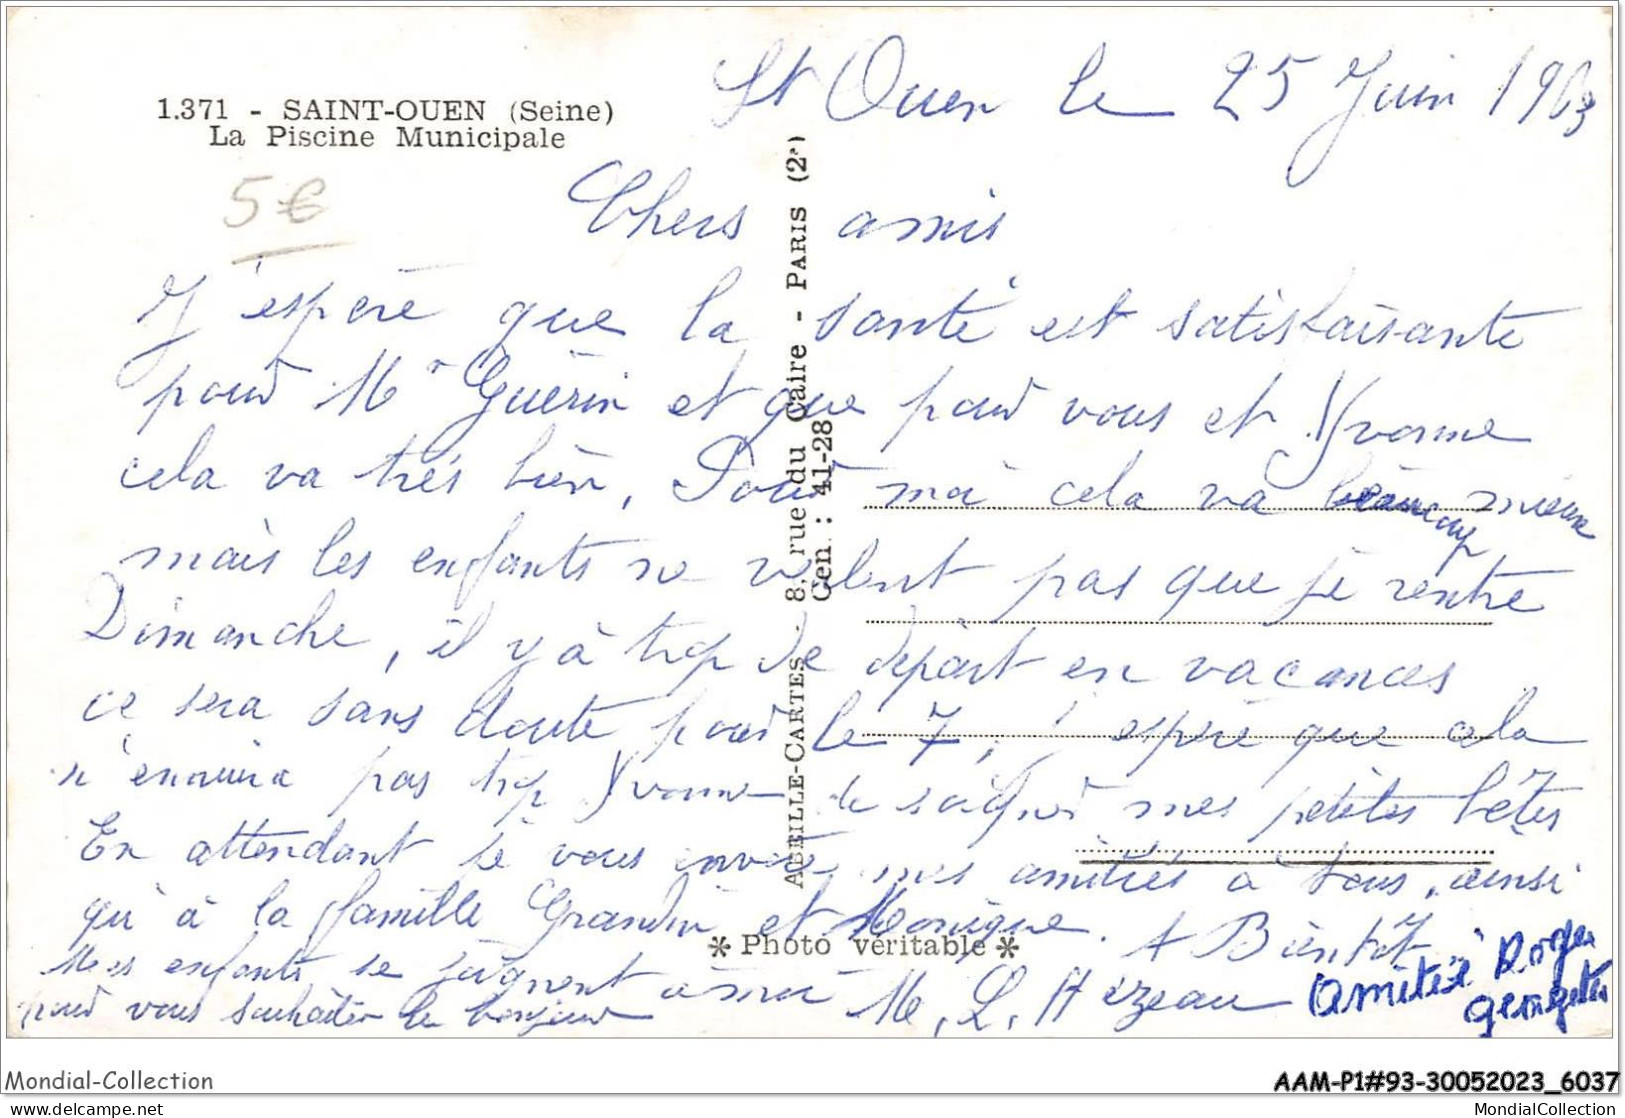 1.371 - SAINT-OUEN (Seine)
La Piscine Municipale
5€
St Ouen le 25 Juin 1963
Chers amis
J'espère que la santé est satisfaisante
pour Mr Guérin et que pour vous et Yvonne
cela va très bien, Pour moi cela va beaucoup mieux
mais les enfants ne veulent pas que je rentre
Dimanche, il y à trop de départ en vacances
ce sera sans doute pour le 7, j'espère que cela
n'ennuira pas trop Yvonne de soigner mes petites bêtes
En attendant je vous envoie mes amitiés à tous, ainsi
qu'à la famille Grandin et Monique. A Bientôt
Mes enfants se joignent à moi M. L. Hézeau
pour vous souhaiter le bonjour
Amitié Roger
georgette
ABEILLE-CARTES - 8, rue du Caire - PARIS (2e)
Cen. : 41-28
* Photo véritable *
Mondial-Collection
AAM-P1#93-30052023_6037
delcampe.net
MondialCollection